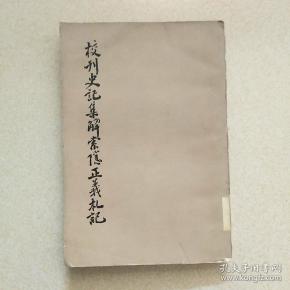 校刊史記集解索隱正義札記
孔夫子旧书网